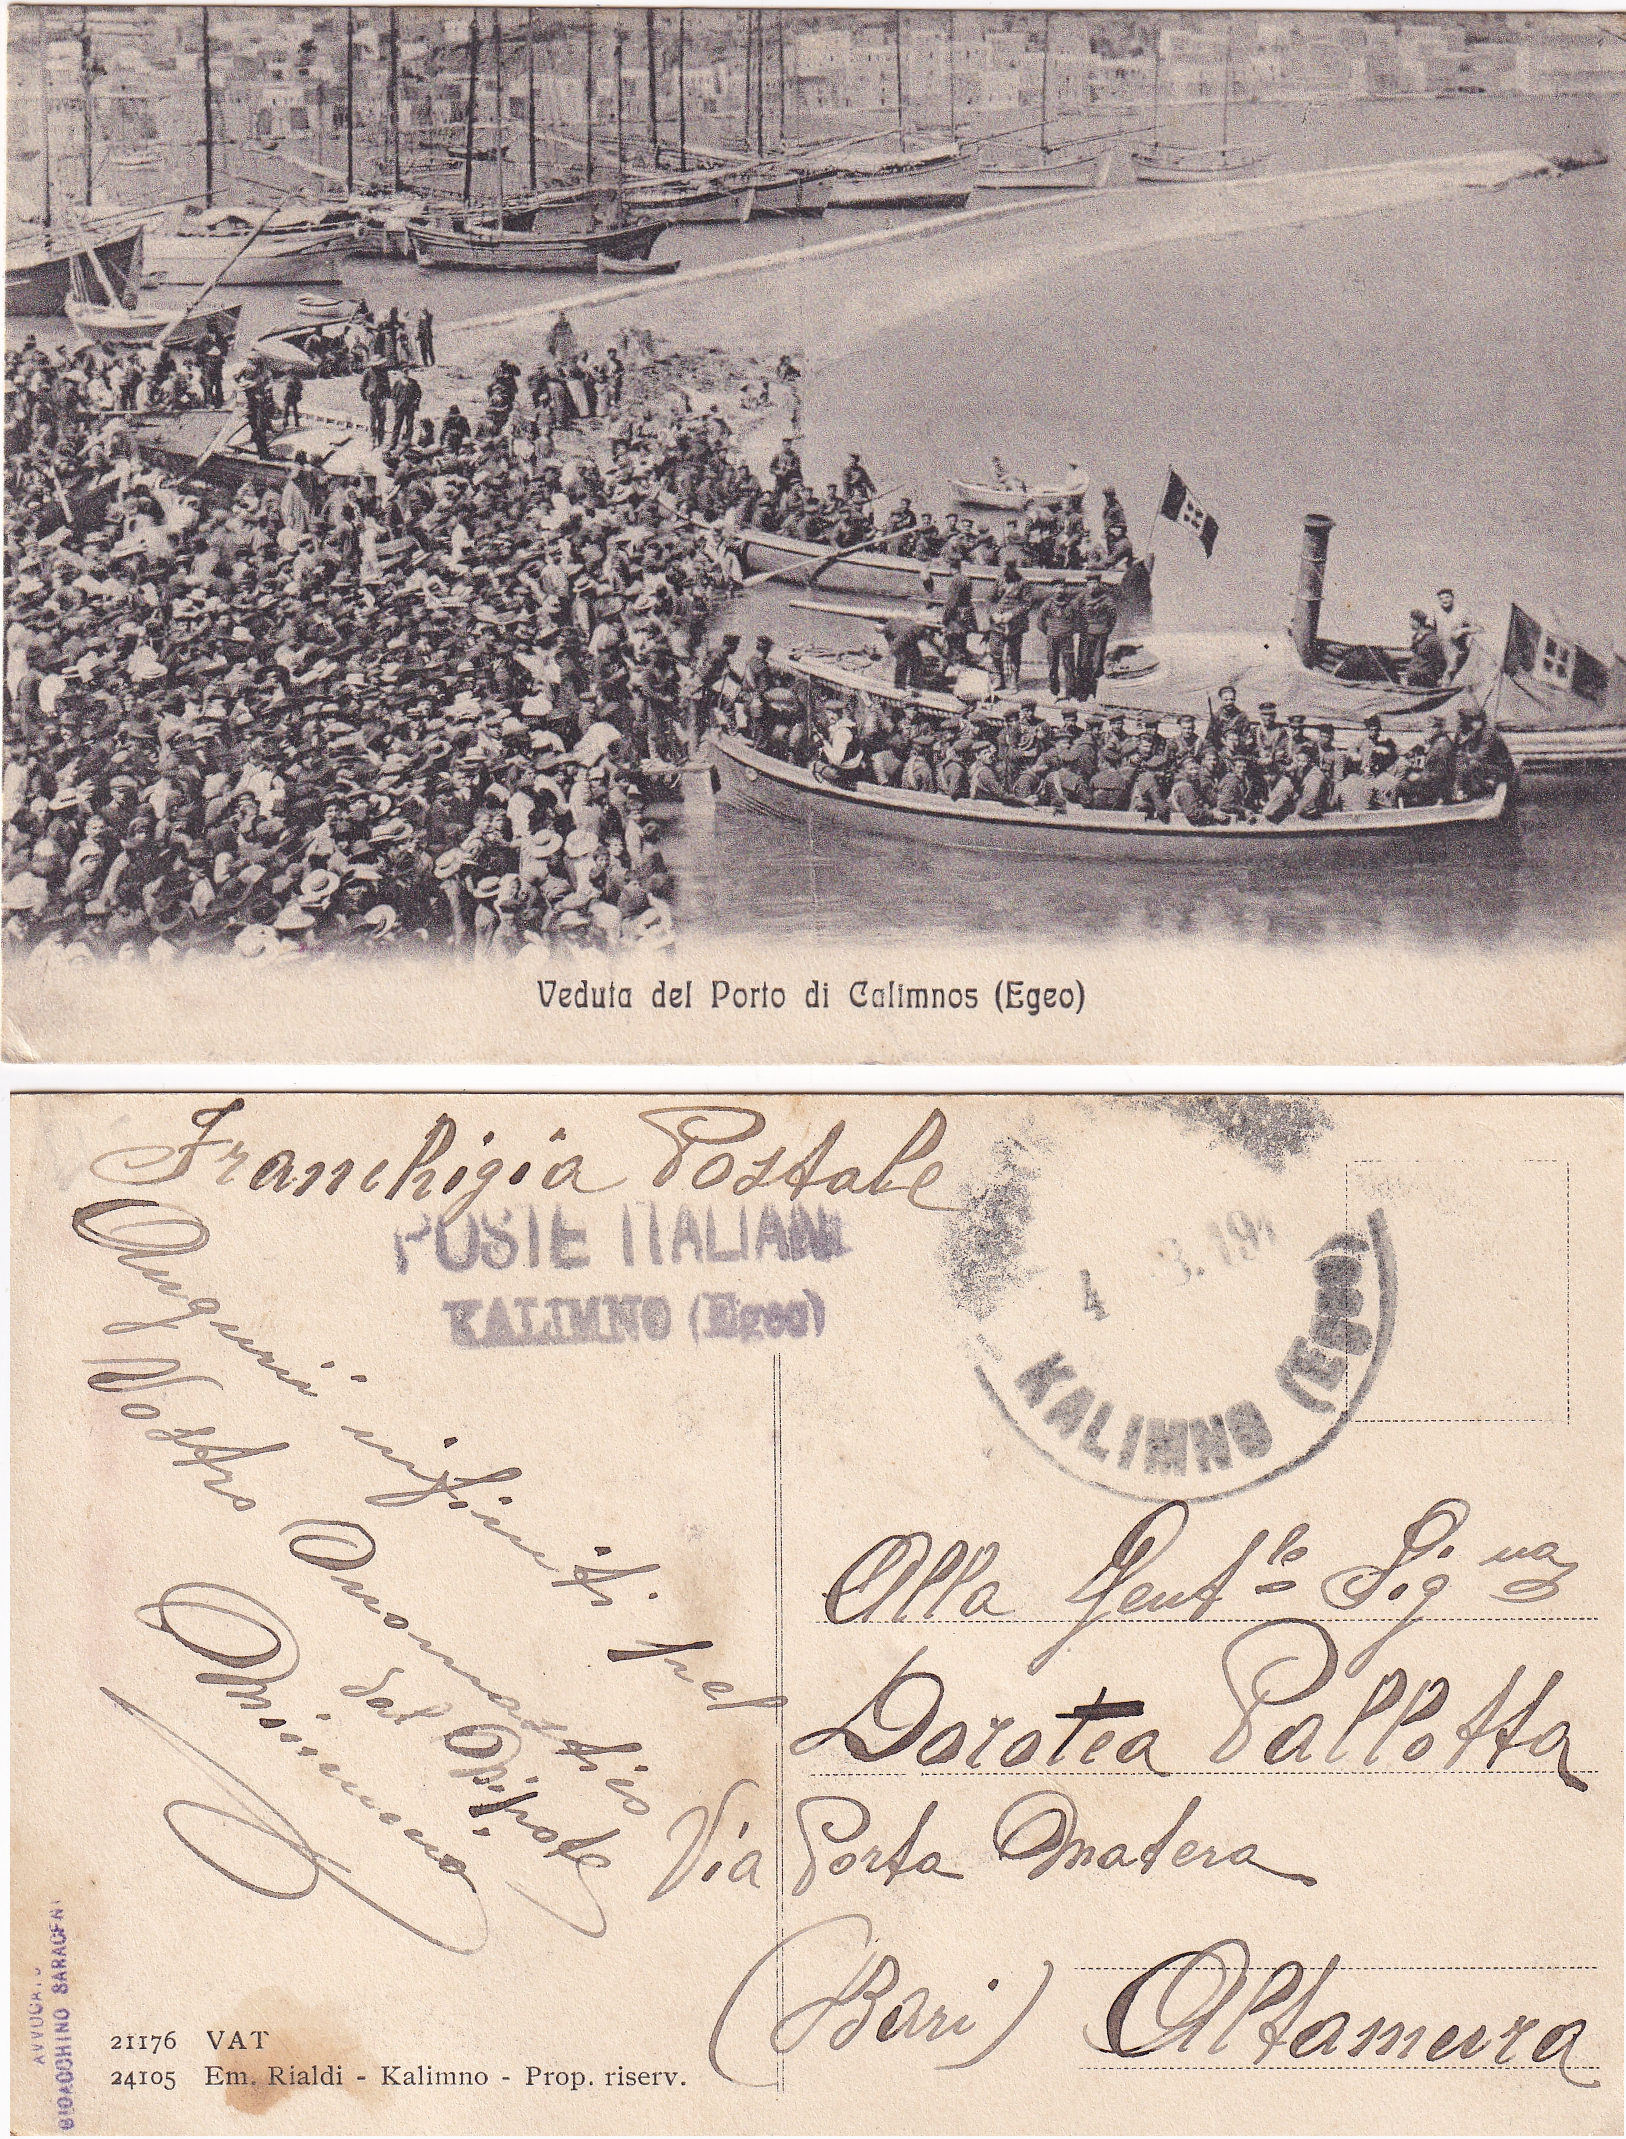 Veduta del Porto di Calimnos (Egeo)
Franchigia Postale
POSTE ITALIANE
KALIMNO (Egeo)
4 3.191
KALIMNO (Egeo)
Auguri infiniti pel
Vostro Onomastico
dal Nipote
Mimmo
Alla Gent.le Sig.na
Dorotea Pallotta
Via Porta Matera
(Bari) Altamura
21176 VAT
24105 Em. Rialdi - Kalimno - Prop. riserv.
AVVOCATO
GIOACCHINO SARACEN